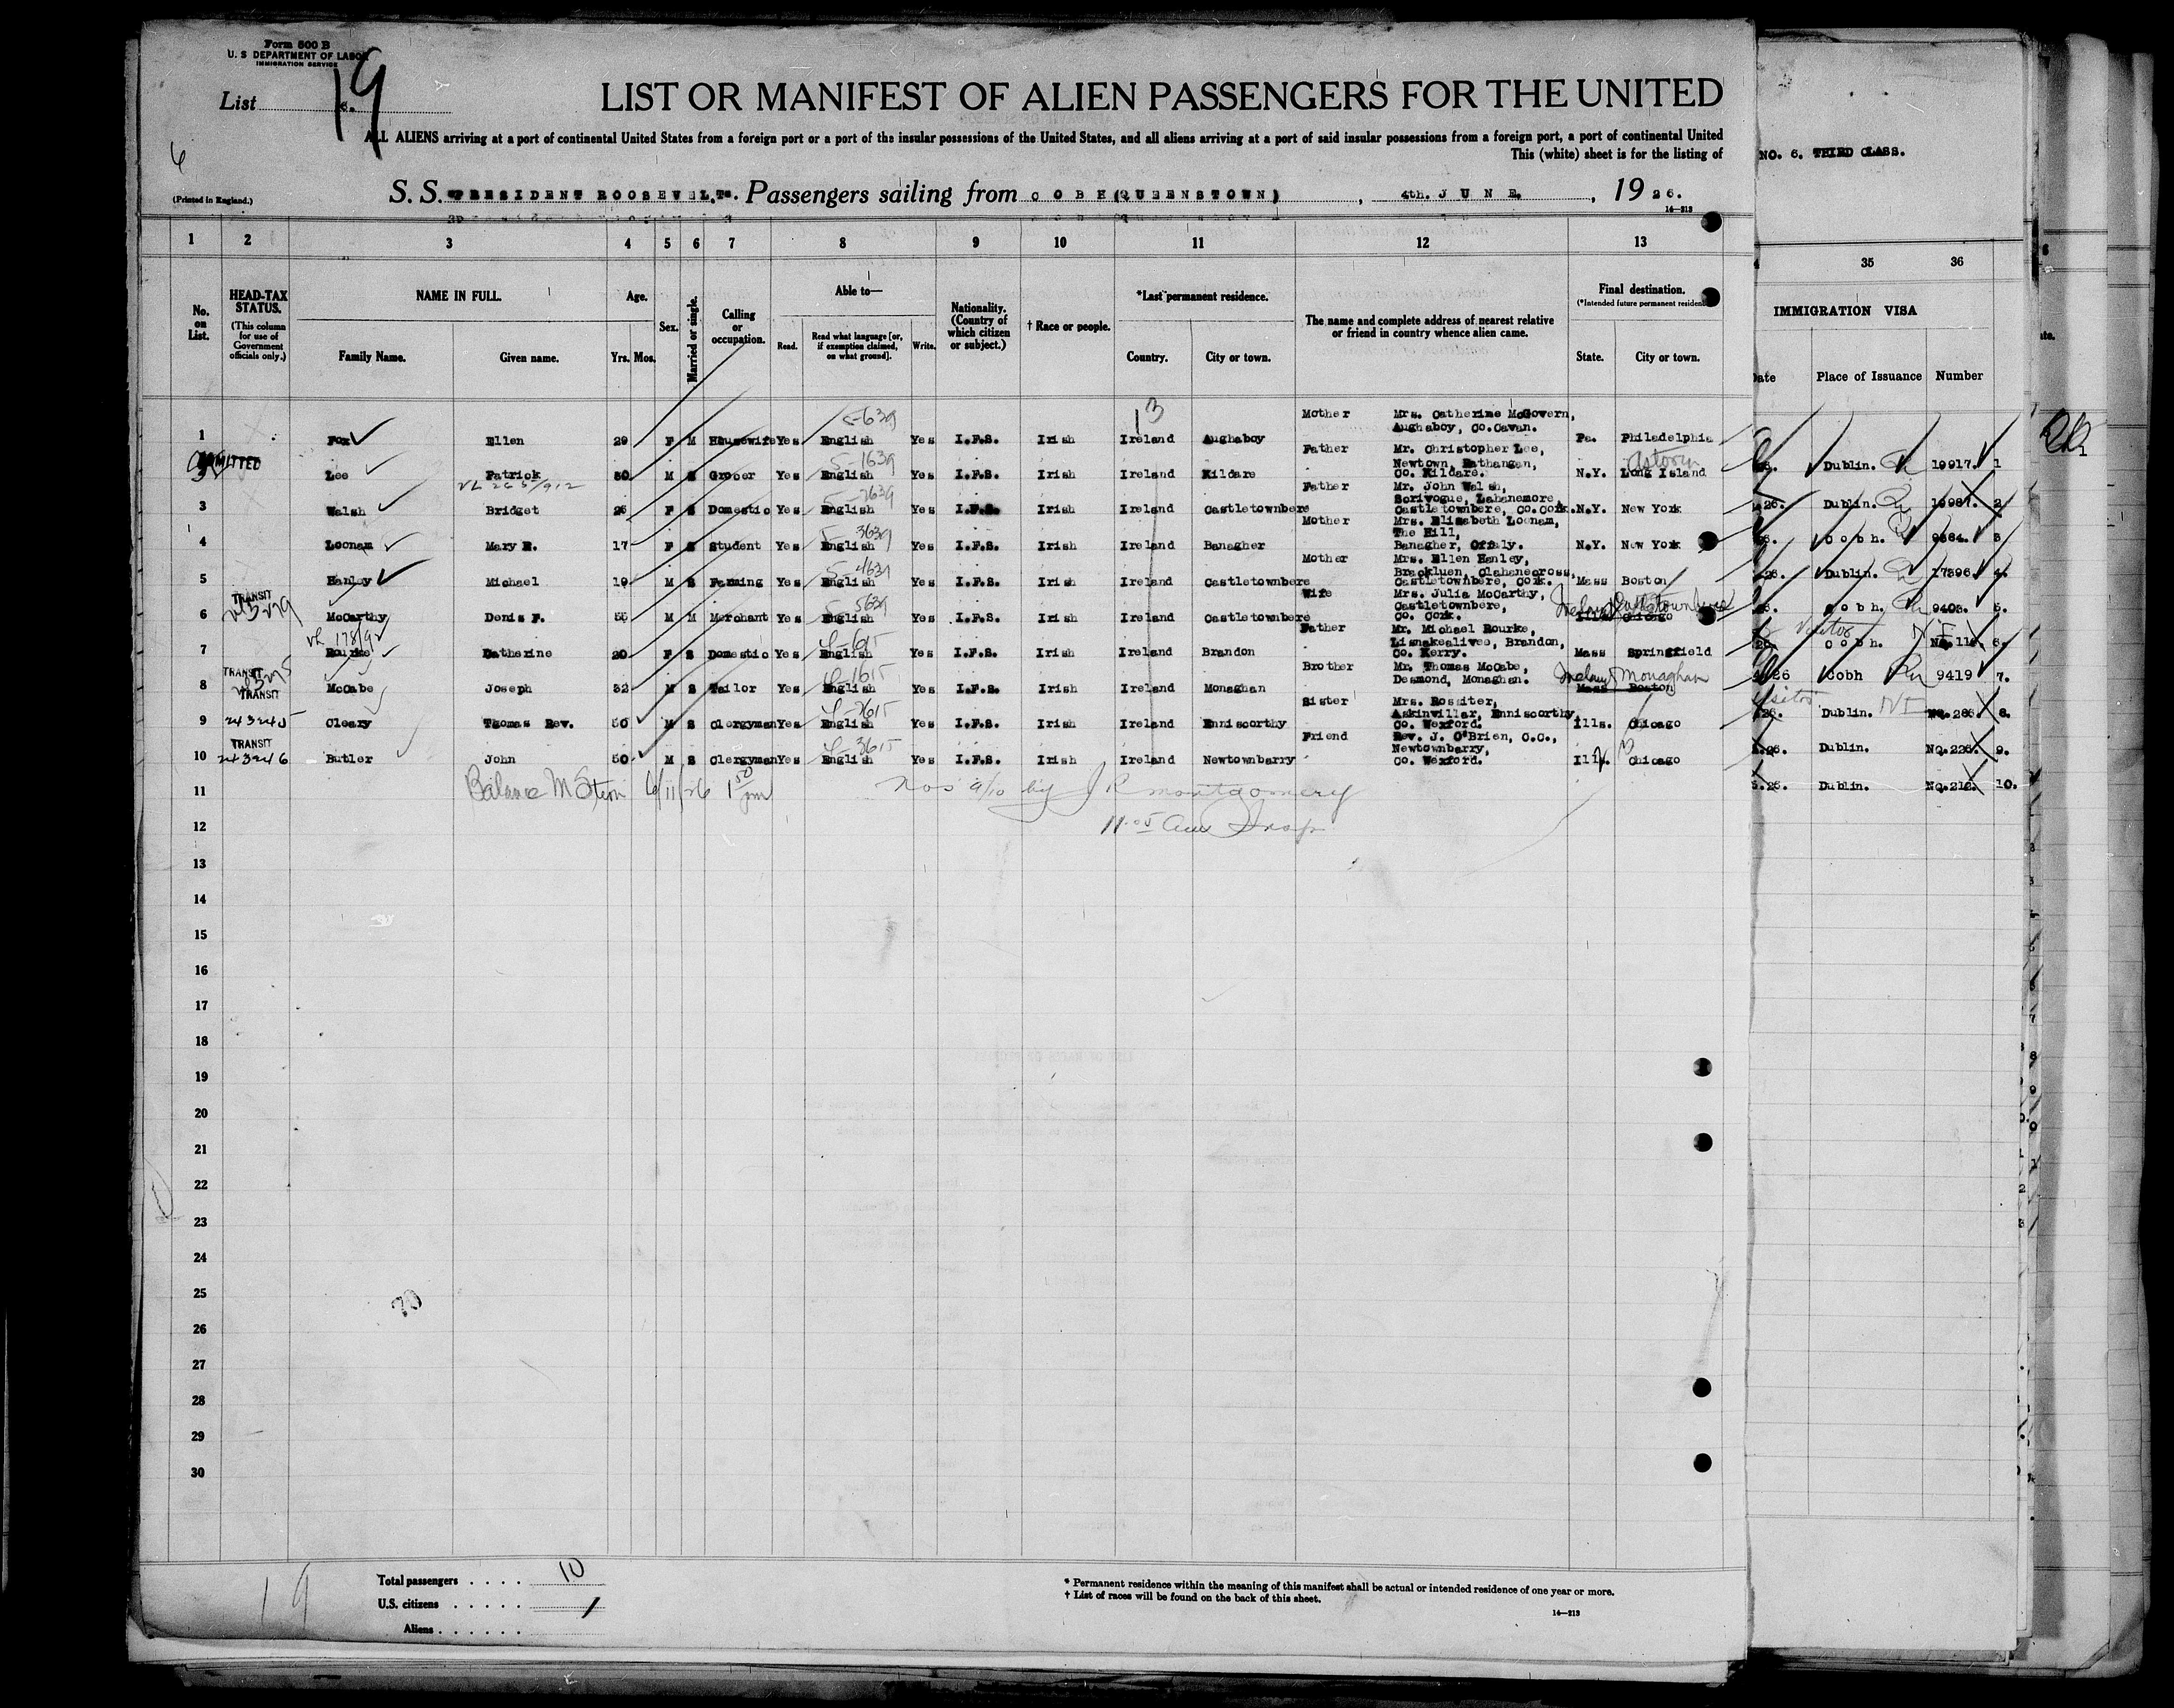 Form 500 B
U. S DEPARTMENT OF LABOR
IMMIGRATION SERVICE
List 19
LIST OR MANIFEST OF ALIEN PASSENGERS FOR THE UNITED
ALL ALIENS arriving at a port of continental United States from a foreign port or a port of the insular possessions of the United States, and all aliens arriving at a port of said insular possessions from a foreign port, a port of continental United
This (white) sheet is for the listing of
NO. 6. THIRD CLASS.
6
(Printed in England.)
S. S. "PRESIDENT ROOSEVELT". Passengers sailing from COBH (QUEENSTOWN), 4th. JUNE., 1926.
14—213
1 2 3 4 5 6 7 8 9 10 11 12 13
35 36
No. on List.
HEAD-TAX STATUS.
(This column for use of Government officials only.)
NAME IN FULL.
Family Name. Given name.
Age.
Yrs. Mos.
Sex.
Married or single.
Calling or occupation.
Able to—
Read. Read what language [or, if exemption claimed, on what ground]. Write.
Nationality. (Country of which citizen or subject.)
† Race or people.
*Last permanent residence.
Country. City or town.
The name and complete address of nearest relative or friend in country whence alien came.
Final destination.
(*Intended future permanent residence)
State. City or town.
IMMIGRATION VISA
Date Place of Issuance Number
13
1 Fox Ellen 29 F M Housewife Yes English Yes I.F.S. Irish Ireland Aughaboy Mother Mrs. Catherine McGovern, Aughaboy, Co.Cavan. Pa. Philadelphia
ADMITTED
2 Lee Patrick 30 M S Grocer Yes English Yes I.F.S. Irish Ireland Kildare Father Mr. Christopher Lee, Newtown, Rathangan, Co. Kildare. N.Y. Long Island Astoria
3 Walsh Bridget 25 F S Domestic Yes English Yes I.F.S. Irish Ireland Castletownbere Father Mr. John Walsh, Scrivogue, Lahanemore, Castletownbere, Co.Cork. N.Y. New York
4 Loonam Mary E. 17 F S Student Yes English Yes I.F.S. Irish Ireland Banagher Mother Mrs. Elizabeth Loonam, The Hill, Banagher, Offaly. N.Y. New York
5 Hanley Michael 19 M S Farming Yes English Yes I.F.S. Irish Ireland Castletownbere Mother Mrs. Ellen Hanley, Brackluen, Clahanecross, Castletownbere, Cork. Mass Boston
TRANSIT
6 McCarthy Denis F. 55 M M Merchant Yes English Yes I.F.S. Irish Ireland Castletownbere Wife Mrs. Julia McCarthy, Castletownbere, Co. Cork. Ills. Chicago Ireland Castletownbere
7 Rourke Catherine 20 F S Domestic Yes English Yes I.F.S. Irish Ireland Brandon Father Mr. Michael Rourke, Lisnakealivee, Brandon, Co. Kerry. Mass Springfield
TRANSIT
8 TRANSIT McCabe Joseph 32 M S Tailor Yes English Yes I.F.S. Irish Ireland Monaghan Brother Mr. Thomas McCabe, Desmond, Monaghan. Mass Boston Ireland Monaghan
9 243245 Cleary Thomas Rev. 50 M S Clergyman Yes English Yes I.F.S. Irish Ireland Enniscorthy Sister Mrs. Rossiter, Askinvillar, Enniscorthy, Co. Wexford. Ills. Chicago
TRANSIT
10 243246 Butler John 50 M S Clergyman Yes English Yes I.F.S. Irish Ireland Newtownbarry Friend Rev. J. O'Brien, C.C., Newtownbarry, Co. Wexford. Ill. Chicago
Dublin. 19917. 1
26. Dublin. 19987. 2
Cobh. 9384. 3
26. Dublin. 17396. 4.
Cobh. 9403. 5.
26. Visitor Cobh. No. 116. 6.
26 Cobh 9419 7.
Visitor 26. Dublin. No. 286. 8.
26. Dublin. No.225. 9.
26. Dublin. No.212. 10.
11 Balance M Stern 6/11/26 1 50 pm Nos 9/10 by J R Montgomery
12 11.05 am Insp
13
14
15
16
17
18
19
20
21
22
23
24
25
26
27
28
29
30
19
Total passengers . . . . 10
U.S. citizens . . . . .
Aliens . . . . . .
* Permanent residence within the meaning of this manifest shall be actual or intended residence of one year or more.
† List of races will be found on the back of this sheet.
14—213